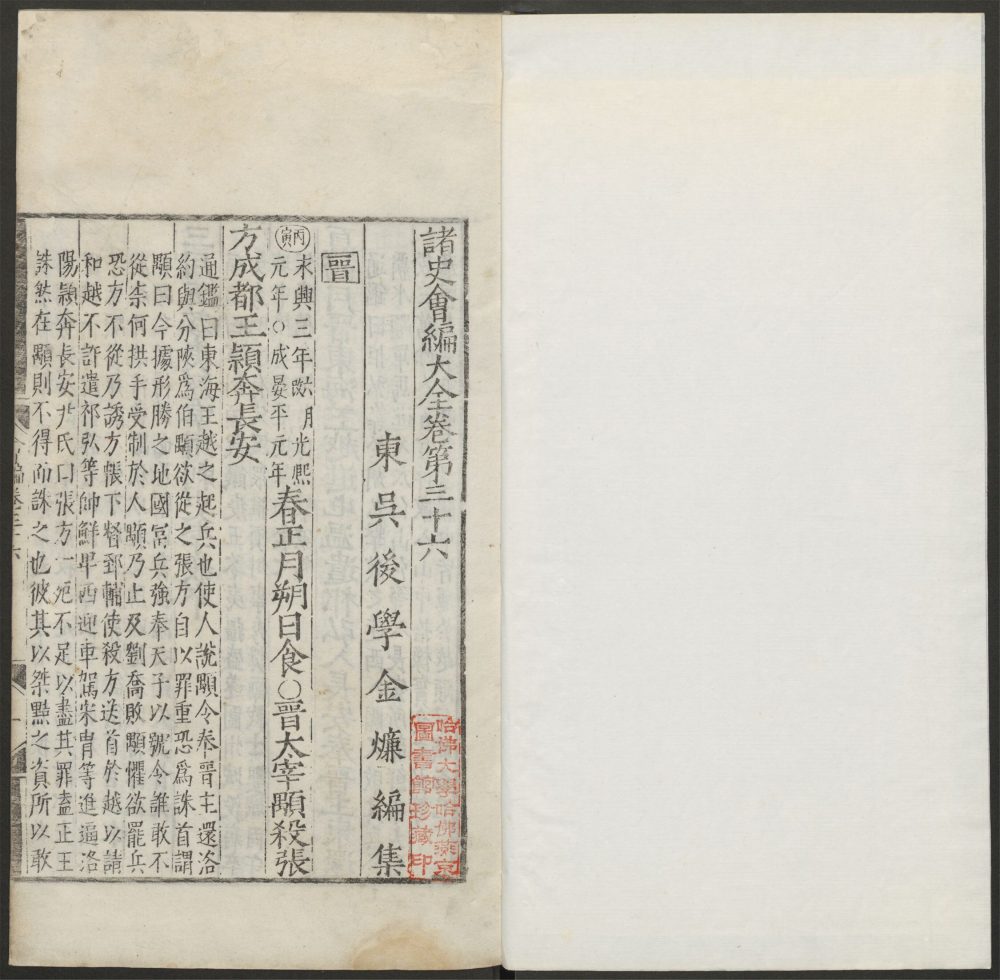 諸史會編大全卷第三十六
東吳後學金燫編集
晉
丙寅
末興三年 月光熙
元年○成晏平元年
春正月朔日食○晉太宰顒殺張
方成都王穎奔長安
通鑑曰東海王越之起兵也使人說顒令奉晉主還洛
約與分陜爲伯顒欲從之張方自以罪重恐爲誅首謂
顒曰今據形勝之地國富兵強奉天子以號令誰敢不
從柰何拱手受制於人顒乃止及劉喬敗顒懼欲罷兵
恐方不從乃誘方帳下督郅輔使殺方送首於越以請
和越不許遣祁弘等帥鮮卑西迎車駕宋胄等進逼洛
陽穎奔長安尹氏曰張方一死不足以盡其罪盖正王
誅然在顒則不得而誅之也彼其以桀黠之資所以敢
編卷三十六
一
哈佛大學哈佛燕京
圖書館珍藏印